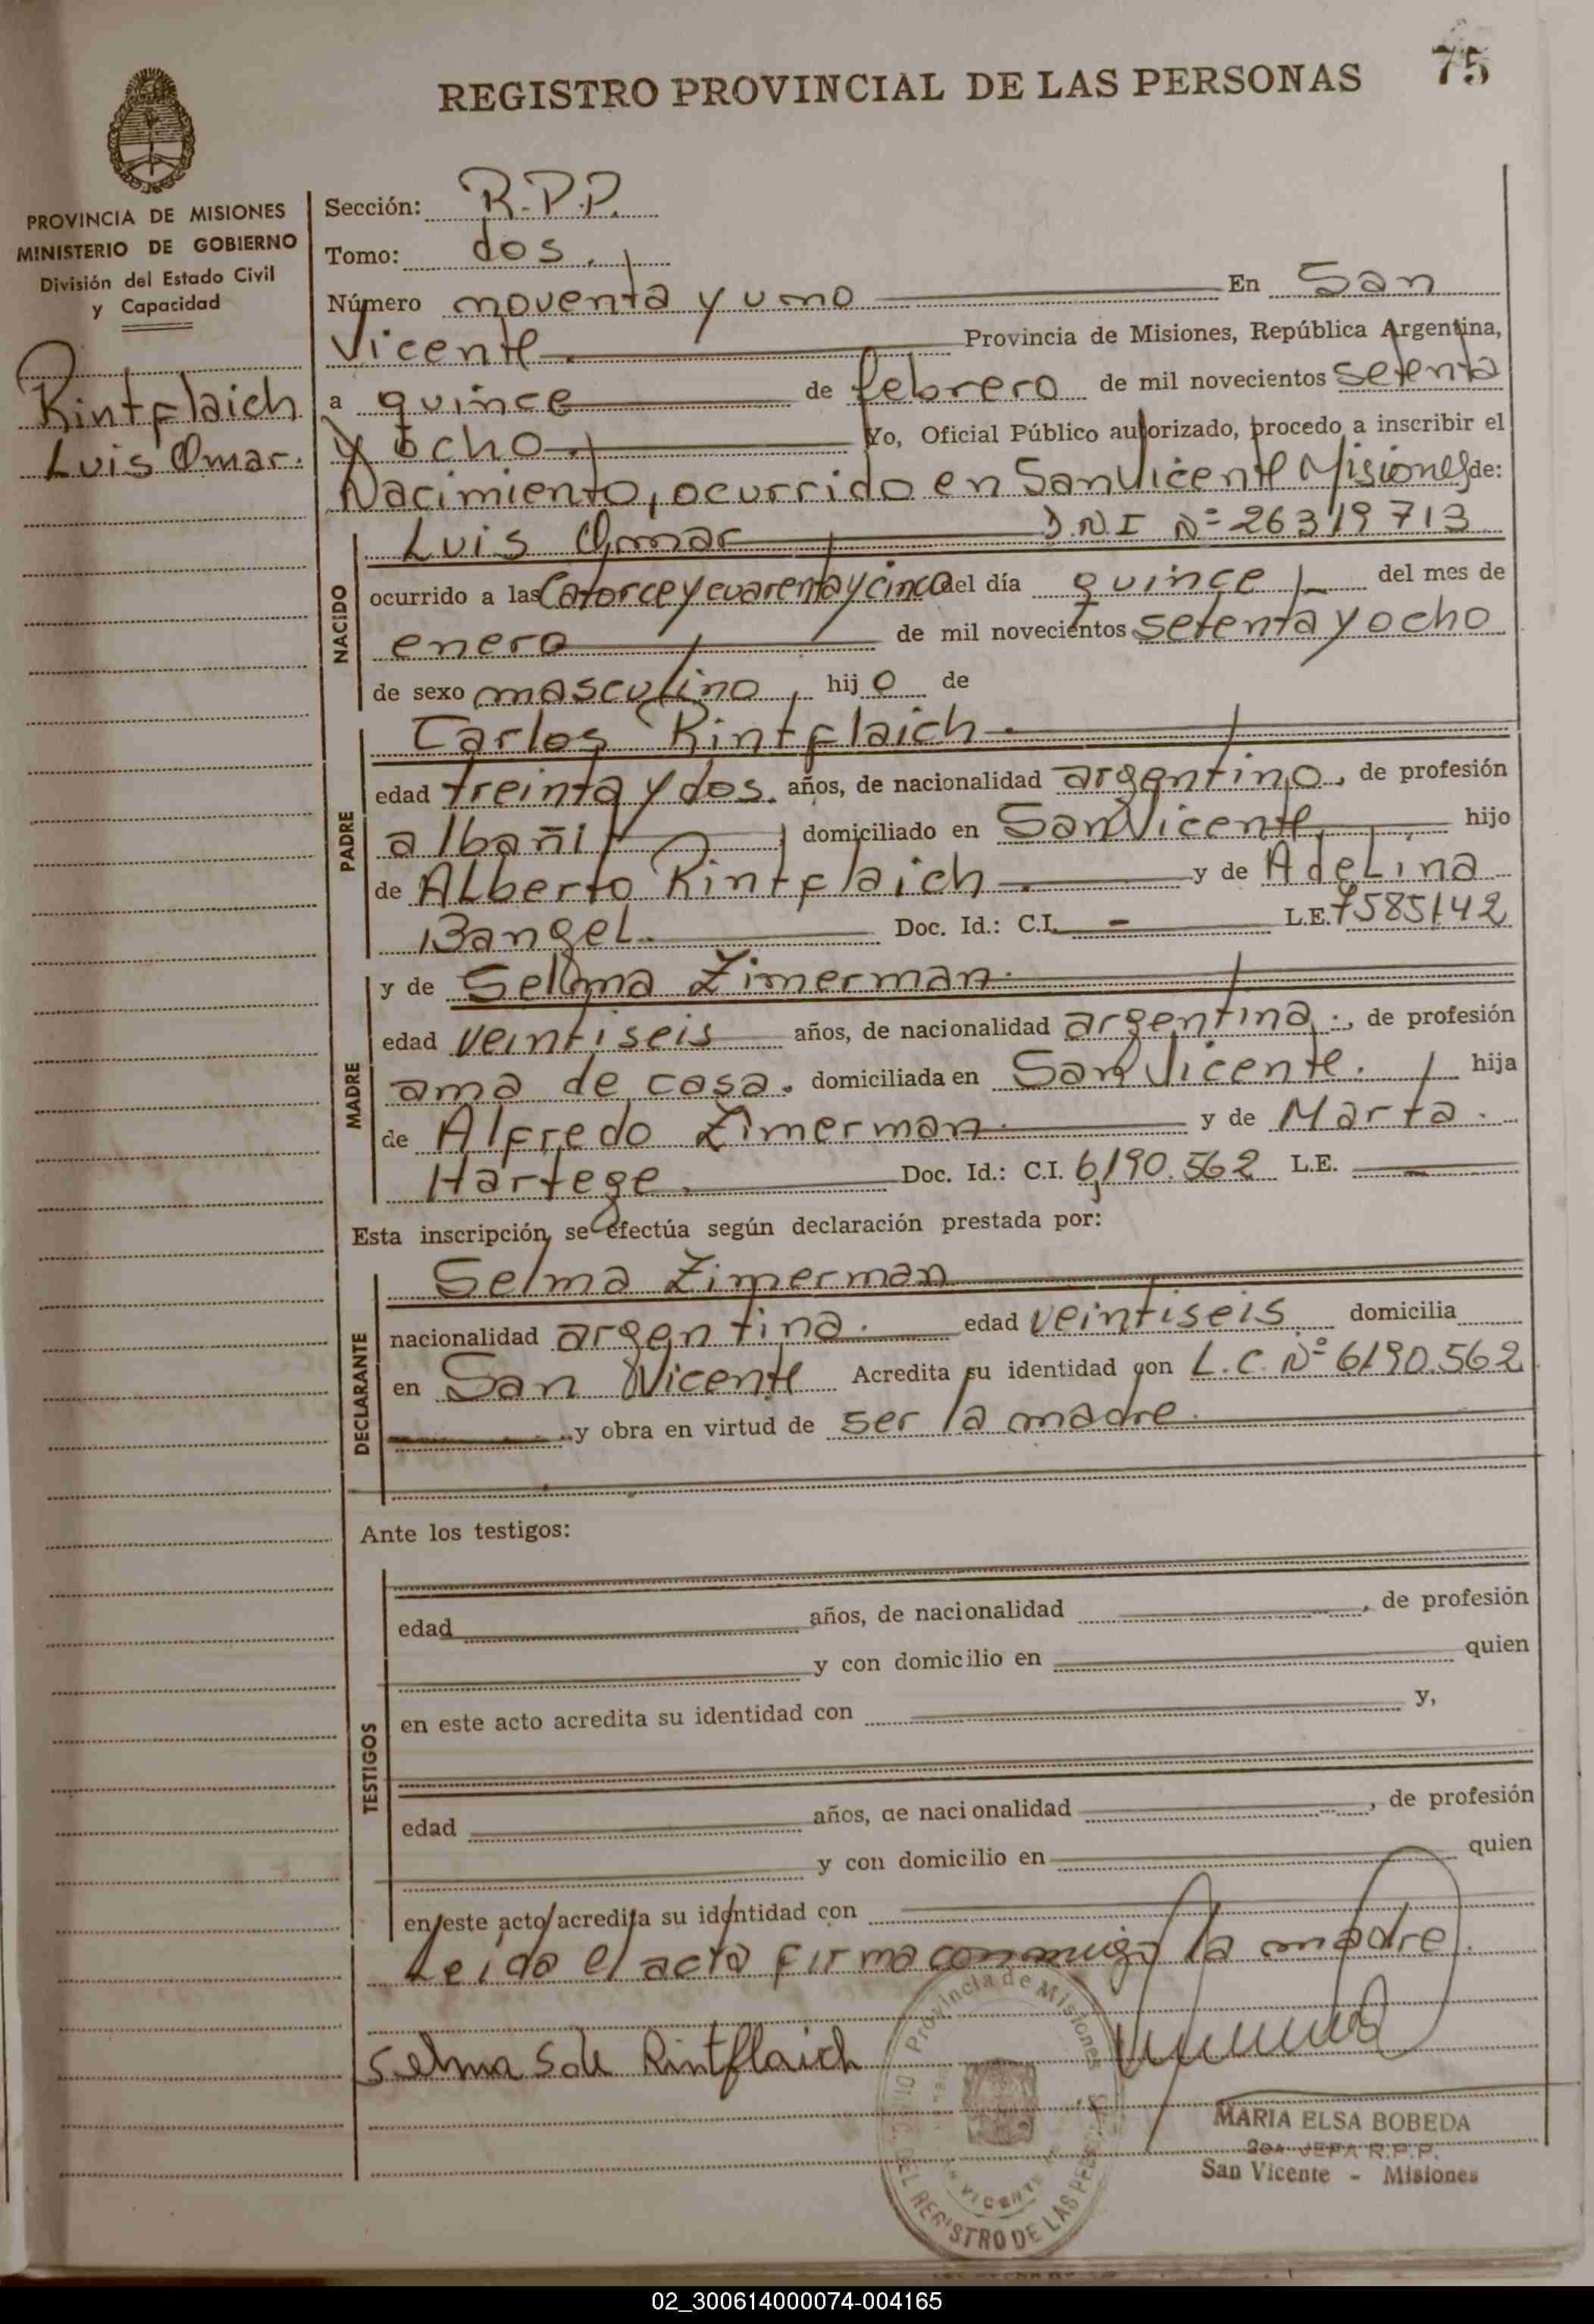 75
REGISTRO PROVINCIAL DE LAS PERSONAS
PROVINCIA DE MISIONES
MINISTERIO DE GOBIERNO
División del Estado Civil
y Capacidad
Rintflaich
Luis Omar.
Sección: R.P.P.
Tomo: dos.
Número noventa y uno En San
Vicente Provincia de Misiones, República Argentina,
a quince de febrero de mil novecientos setenta
y ocho Yo, Oficial Público autorizado, procedo a inscribir el
Nacimiento, ocurrido en San Vicente Misiones de:
NACIDO
Luis Omar D.N.I Nº 26319713
ocurrido a las Catorce y cuarenta y cinco del día quince del mes de
enero de mil novecientos setenta y ocho
de sexo masculino, hijo de
PADRE
Carlos Rintflaich
edad treinta y dos. años, de nacionalidad argentino, de profesión
albañil domiciliado en San Vicente, hijo
de Alberto Rintflaich y de Adelina
Bangel. Doc. Id.: C.I. - L.E. 7585142
MADRE
y de Selma Zimerman
edad veintiseis años, de nacionalidad argentina, de profesión
ama de casa. domiciliada en San Vicente. hija
de Alfredo Zimerman y de Marta.
Hartege. Doc. Id.: C.I. 6190.562 L.E.
Esta inscripción se efectúa según declaración prestada por:
DECLARANTE
Selma Zimerman
nacionalidad argentina. edad veintiseis domicilia
en San Vicente Acredita su identidad con L.C. Nº 6190.562
y obra en virtud de ser la madre.
Ante los testigos:
TESTIGOS
edad años, de nacionalidad , de profesión
y con domicilio en quien
en este acto acredita su identidad con y,
edad años, de nacionalidad , de profesión
y con domicilio en quien
en este acto acredita su identidad con
Leído el acta firma conmigo la madre.
Selma S de Rintflaich
Provincia de Misiones
DEL REGISTRO DE LAS PERS
VICENTE
MARIA ELSA BOBEDA
2DA JEFA R.P.P.
San Vicente - Misiones
02_300614000074-004165